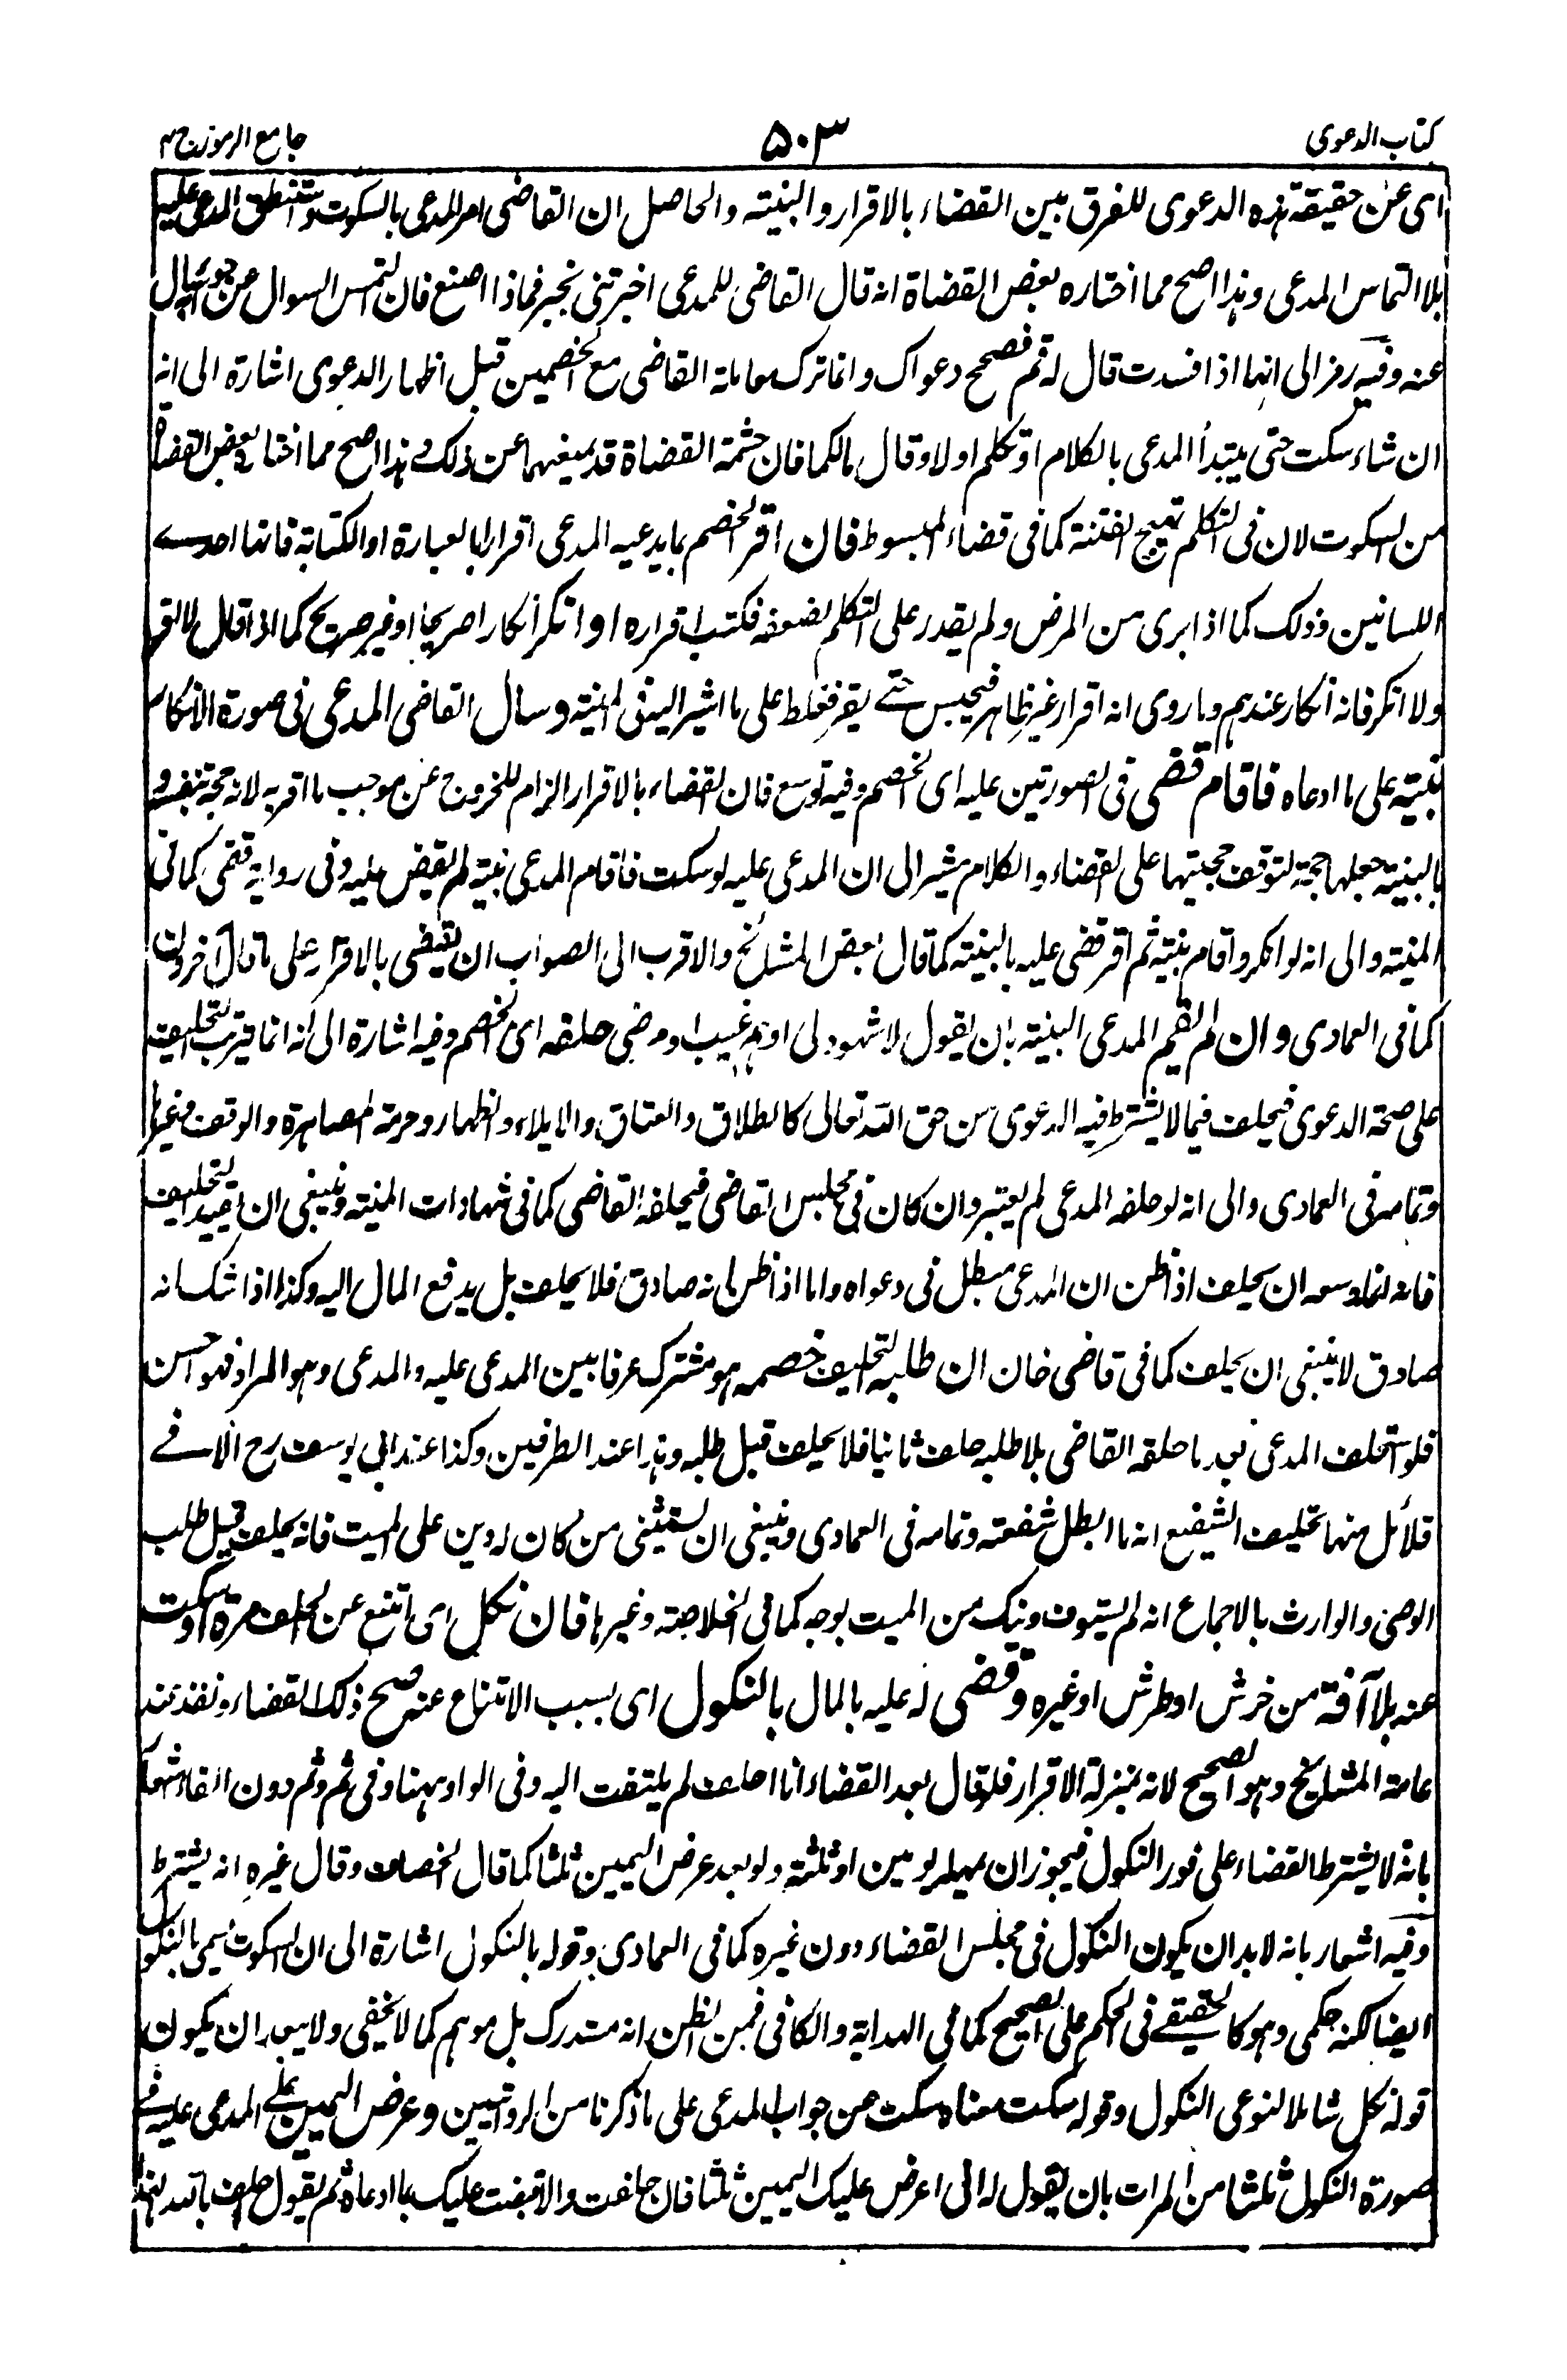 كتاب الدعوى
٥٠٣
جامع الرموز ج ٢
اى عن حقيقة هذه الدعوى للفرق بين القضاء بالاقرار والبينة والحاصل ان القاضى امر المدعى بالسكوت واستنطق المدعى عليه
بلا التماس المدعى وهذا اصح مما اختاره بعض القضاة انه قال القاضى للمدعى اخبرتنى بخبر فماذا اصنع فان التمس السوال عن جوابه سال
عنه وفيه رمز الى انها اذا فسدت قال له قم فصحح دعواك وانما ترك معاملة القاضى مع الخصمين قبل اظهار الدعوى اشارة الى انه
ان شاء سكت حتى يبتدأ المدعى بالكلام او تكلم اولا وقال مالكما فان حشمة القضاة قد يمنعهما عن ذلك وهذا اصح مما اختاره بعض القضاة
من السكوت لان فى التكلم تهييج الفتنة كما فى قضاء المبسوط فان اقر الخصم بما يدعيه المدعى اقرارا بالعبارة او الكتابة فانها احدى
اللسانين وذلك كما اذا برى من المرض ولم يقدر على التكلم لضعفه فكتب اقراره او انكر انكارا صريحا او غير صريح كما اذا قال لا اقر
ولا انكر فانه انكار عندهم وما روى انه اقرار غير ظاهر فيحبس حتى يقر فغلط على ما اشير اليه فى المنية وسال القاضى المدعى فى صورة الانكار
بينة على ما ادعاه فاقام قضى فى الصورتين عليه اى الخصم وفيه توسع فان القضاء بالاقرار الزام للخروج عن موجب ما اقر به لانه حجة بنفسه و
بالبينة جعلها حجة لتوقف حجيتها على القضاء والكلام مشير الى ان المدعى عليه لو سكت فاقام المدعى بينة لم يقض عليه وفى رواية قضى كما فى
المنية والى انه لو انكر واقام بينة ثم اقر قضى عليه بالبينة كما قال بعض المشائخ والاقرب الى الصواب ان يقضى بالاقرار على ما قال آخرون
كما فى العمادى وان لم يقم المدعى البينة بان يقول لا شهود لى او هم غيب او مرضى حلفه اى الخصم وفيه اشارة الى انه انما يترتب التحليف
على صحة الدعوى فيحلف فيما لا يشترط فيه الدعوى من حق الله تعالى كالطلاق والعتاق والايلاء والظهار وحرمة المصاهرة والوقف وغيرها
وتمامه فى العمادى والى انه لو حلفه المدعى لم يعتبر وان كان فى مجلس القاضى فيحلفه القاضى كما فى شهادات المنية وينبغى ان يقيد التحليف
فانه انما وسعه ان يحلف اذا ظن ان المدعى مبطل فى دعواه واما اذا ظن انه صادق فلا يحلف بل يدفع المال اليه وكذا اذا شك انه
صادق لا ينبغى ان يحلف كما فى قاضى خان ان طلبه لتحليف خصمه هو مشترك عرفا بين المدعى عليه والمدعى وهو المراد فهو احسن
فلو استحلف المدعى بعد ما حلفه القاضى بلا طلبه حلف ثانيا فلا يحلف قبل طلبه وهذا عند الطرفين وكذا عند ابى يوسف رح الا فى
قلائل منها تحليف الشفيع انه ما ابطل شفعته وتمامه فى العمادى وينبغى ان يستثنى من كان له دين على الميت فانه يحلف قبل طلب
الوصى والوارث بالاجماع انه لم يستوف دينك من الميت بوجه كما فى الخلاصة وغيرها فان نكل اى امتنع عن الحلف مرة او سكت
عنه بلا آفة من خرش او طرش او غيره وقضى له عليه بالمال بالنكول اى بسبب الامتناع عنه صح ذلك القضاء ونفذ عند
عامة المشايخ وهو الصحيح لانه بمنزلة الاقرار فلو قال بعد القضاء انا احلف لم يلتفت اليه وفى الواو ههنا وفى ثم وثم دون الفاء اشعار
بانه لا يشترط القضاء على فور النكول فيجوز ان يمهله يومين او ثلثة ولو بعد عرض اليمين ثلثا كما قال الخصاف وقال غيره انه يشترط
وفيه اشعار بانه لا بد ان يكون النكول فى مجلس القضاء دون غيره كما فى العمادى وقوله بالنكول اشارة الى ان السكوت يسمى بالنكول
ايضا لكنه حكمى وهو كالحقيقى فى الحكم على الصحيح كما فى الهداية والكافى فمن الظن انه مستدرك بل موهم كما لا يخفى ولا يبعد ان يكون
قوله نكل شاملا لنوعى النكول وقوله سكت معناه سكت عن جواب المدعى على ما ذكرنا من الروايتين وعرض اليمين على المدعى عليه فى
صورة النكول ثلثا من المرات بان يقول له انى اعرض عليك اليمين ثلثا فان حلفت والا قضيت عليك بما ادعاه ثم يقول احلف بالله لهذا